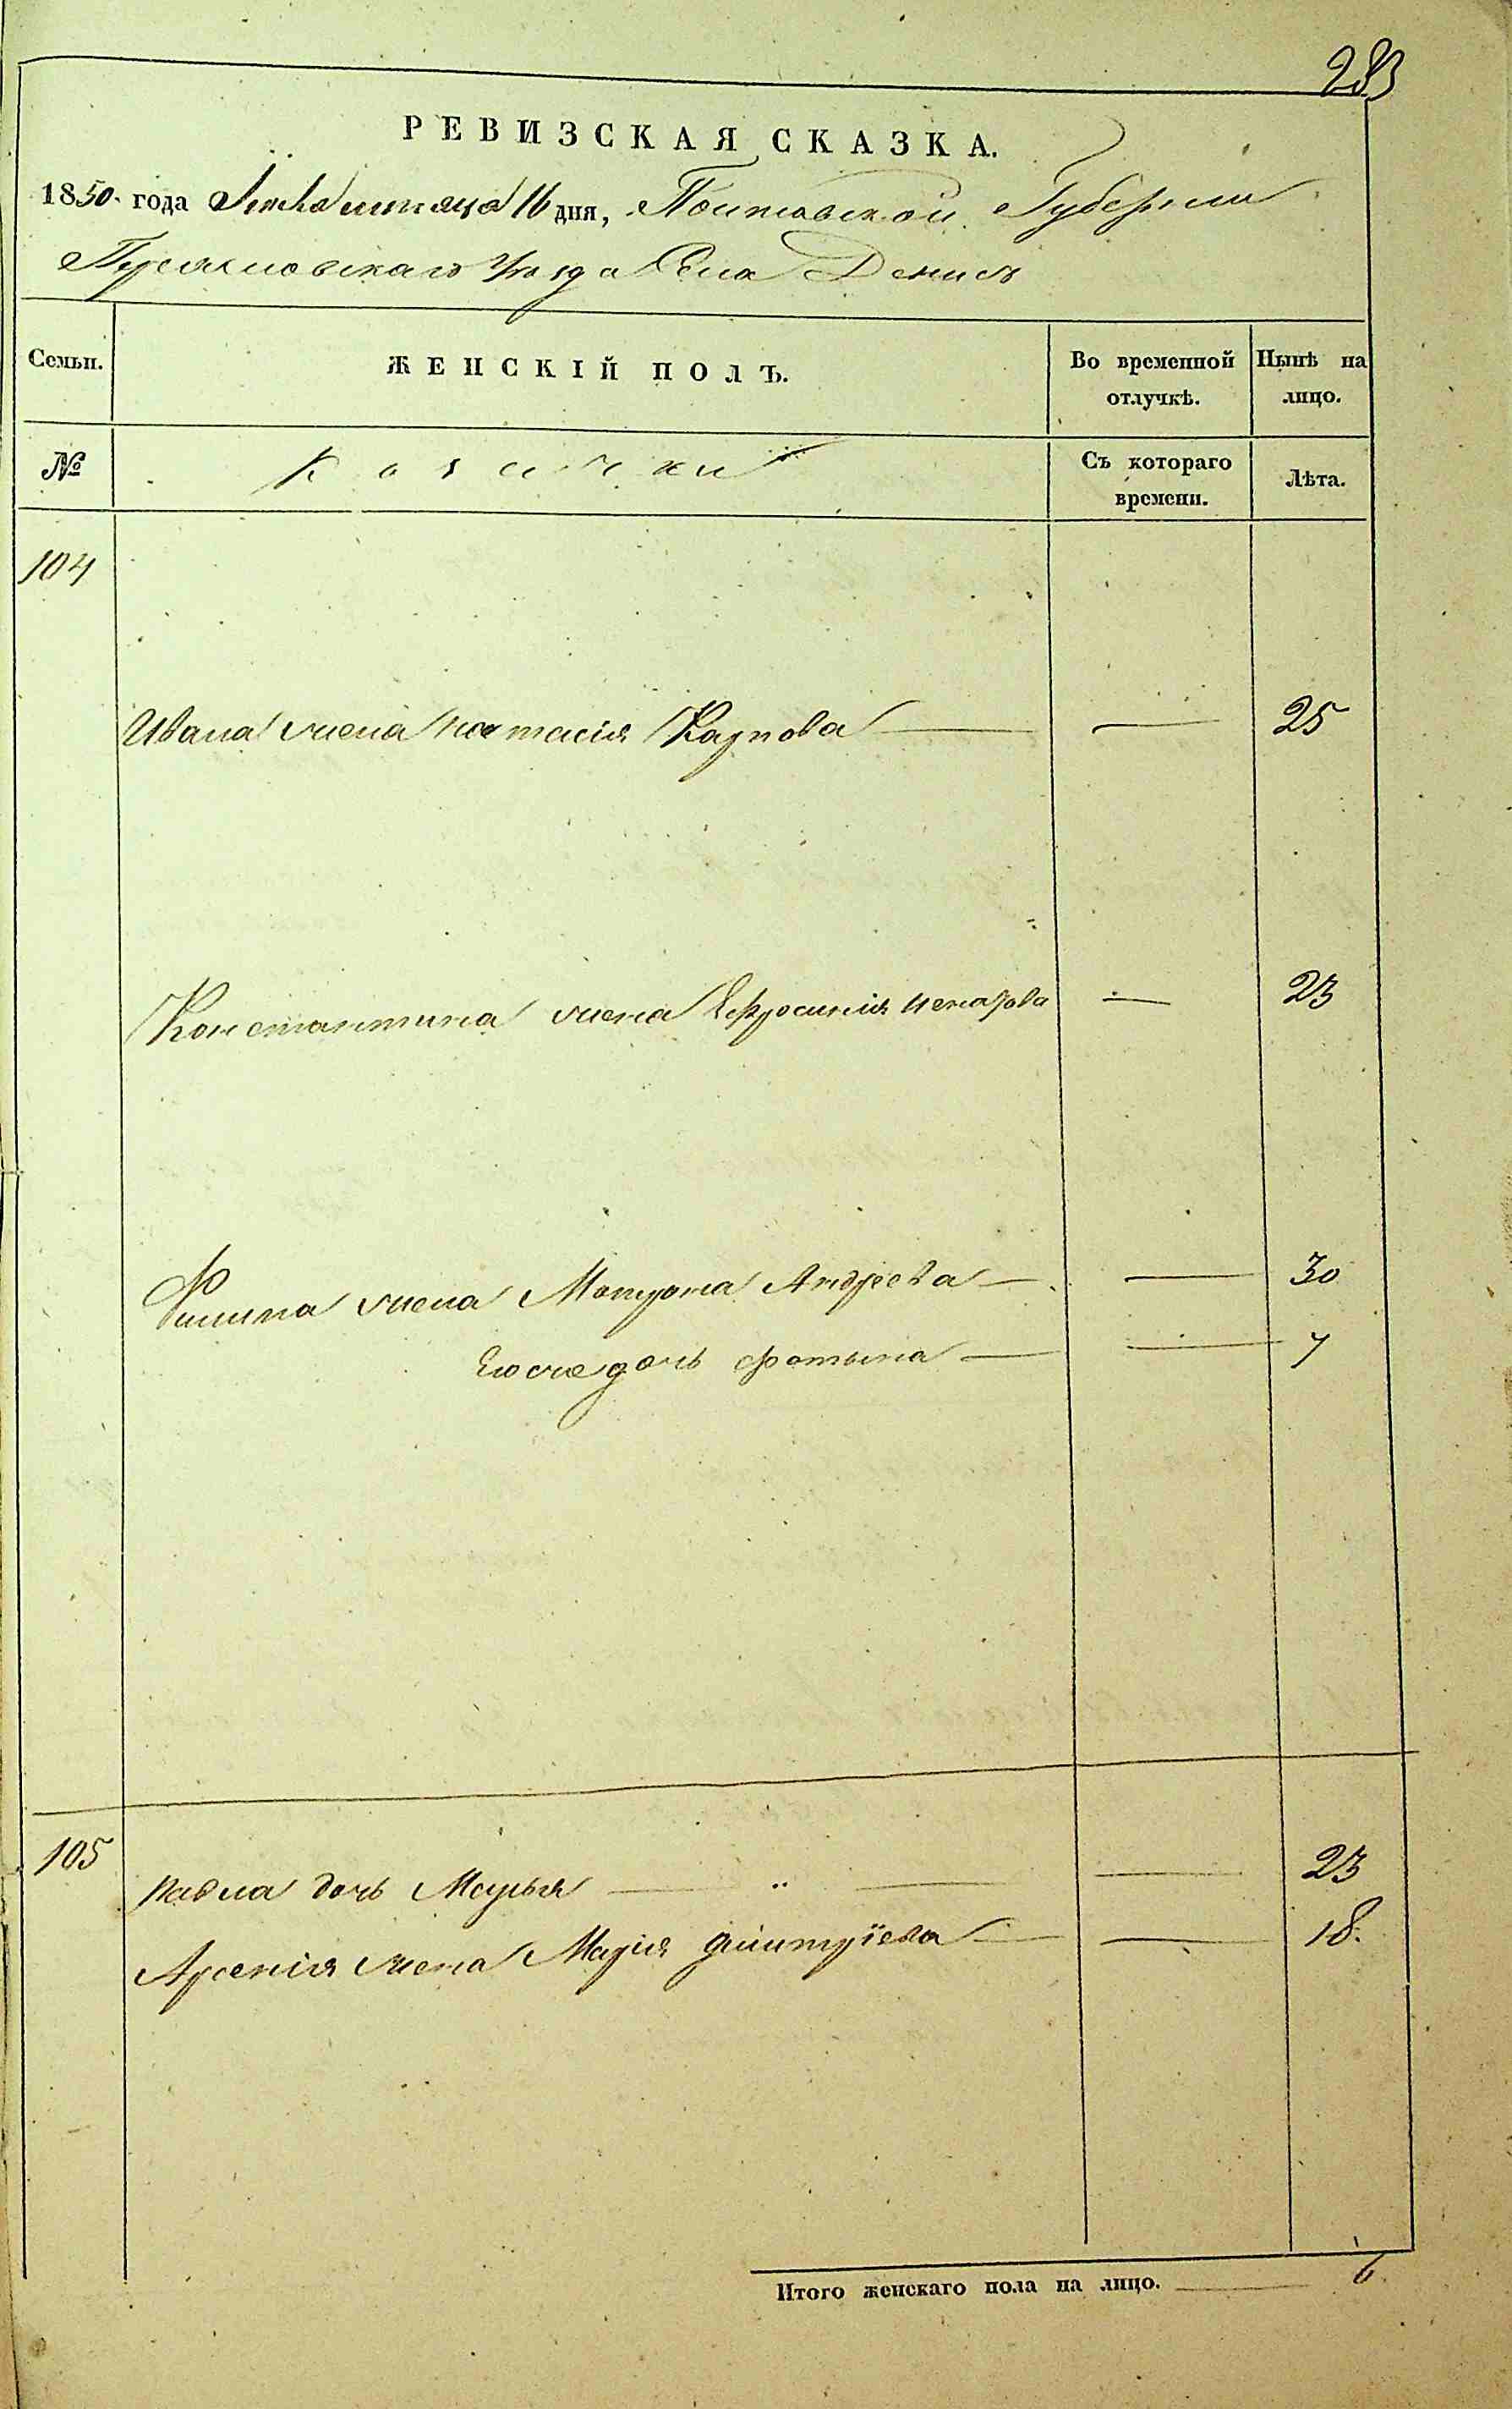 283
РЕВИЗСКАЯ СКАЗКА.
1850. года месяца 16 дня, Полтавской Губернии
Переяславского Уезда Села Денис
Семьи. ЖЕНСКІЙ ПОЛЪ. Во временной отлучкѣ. Нынѣ на лицо.
№ Козачки Съ котораго времени. Лѣта.
104
Ивана жена Настасія Карпова — — 25
Константина жена Ефросинія — 23
Филипа жена Матрона Андреева — — 30
Его же дочь Фотына — — 7
105
Павла дочь Марья — " — — 23
Арсенія жена Марія Дмитріева — — 18.
Итого женскаго пола на лицо. — 6